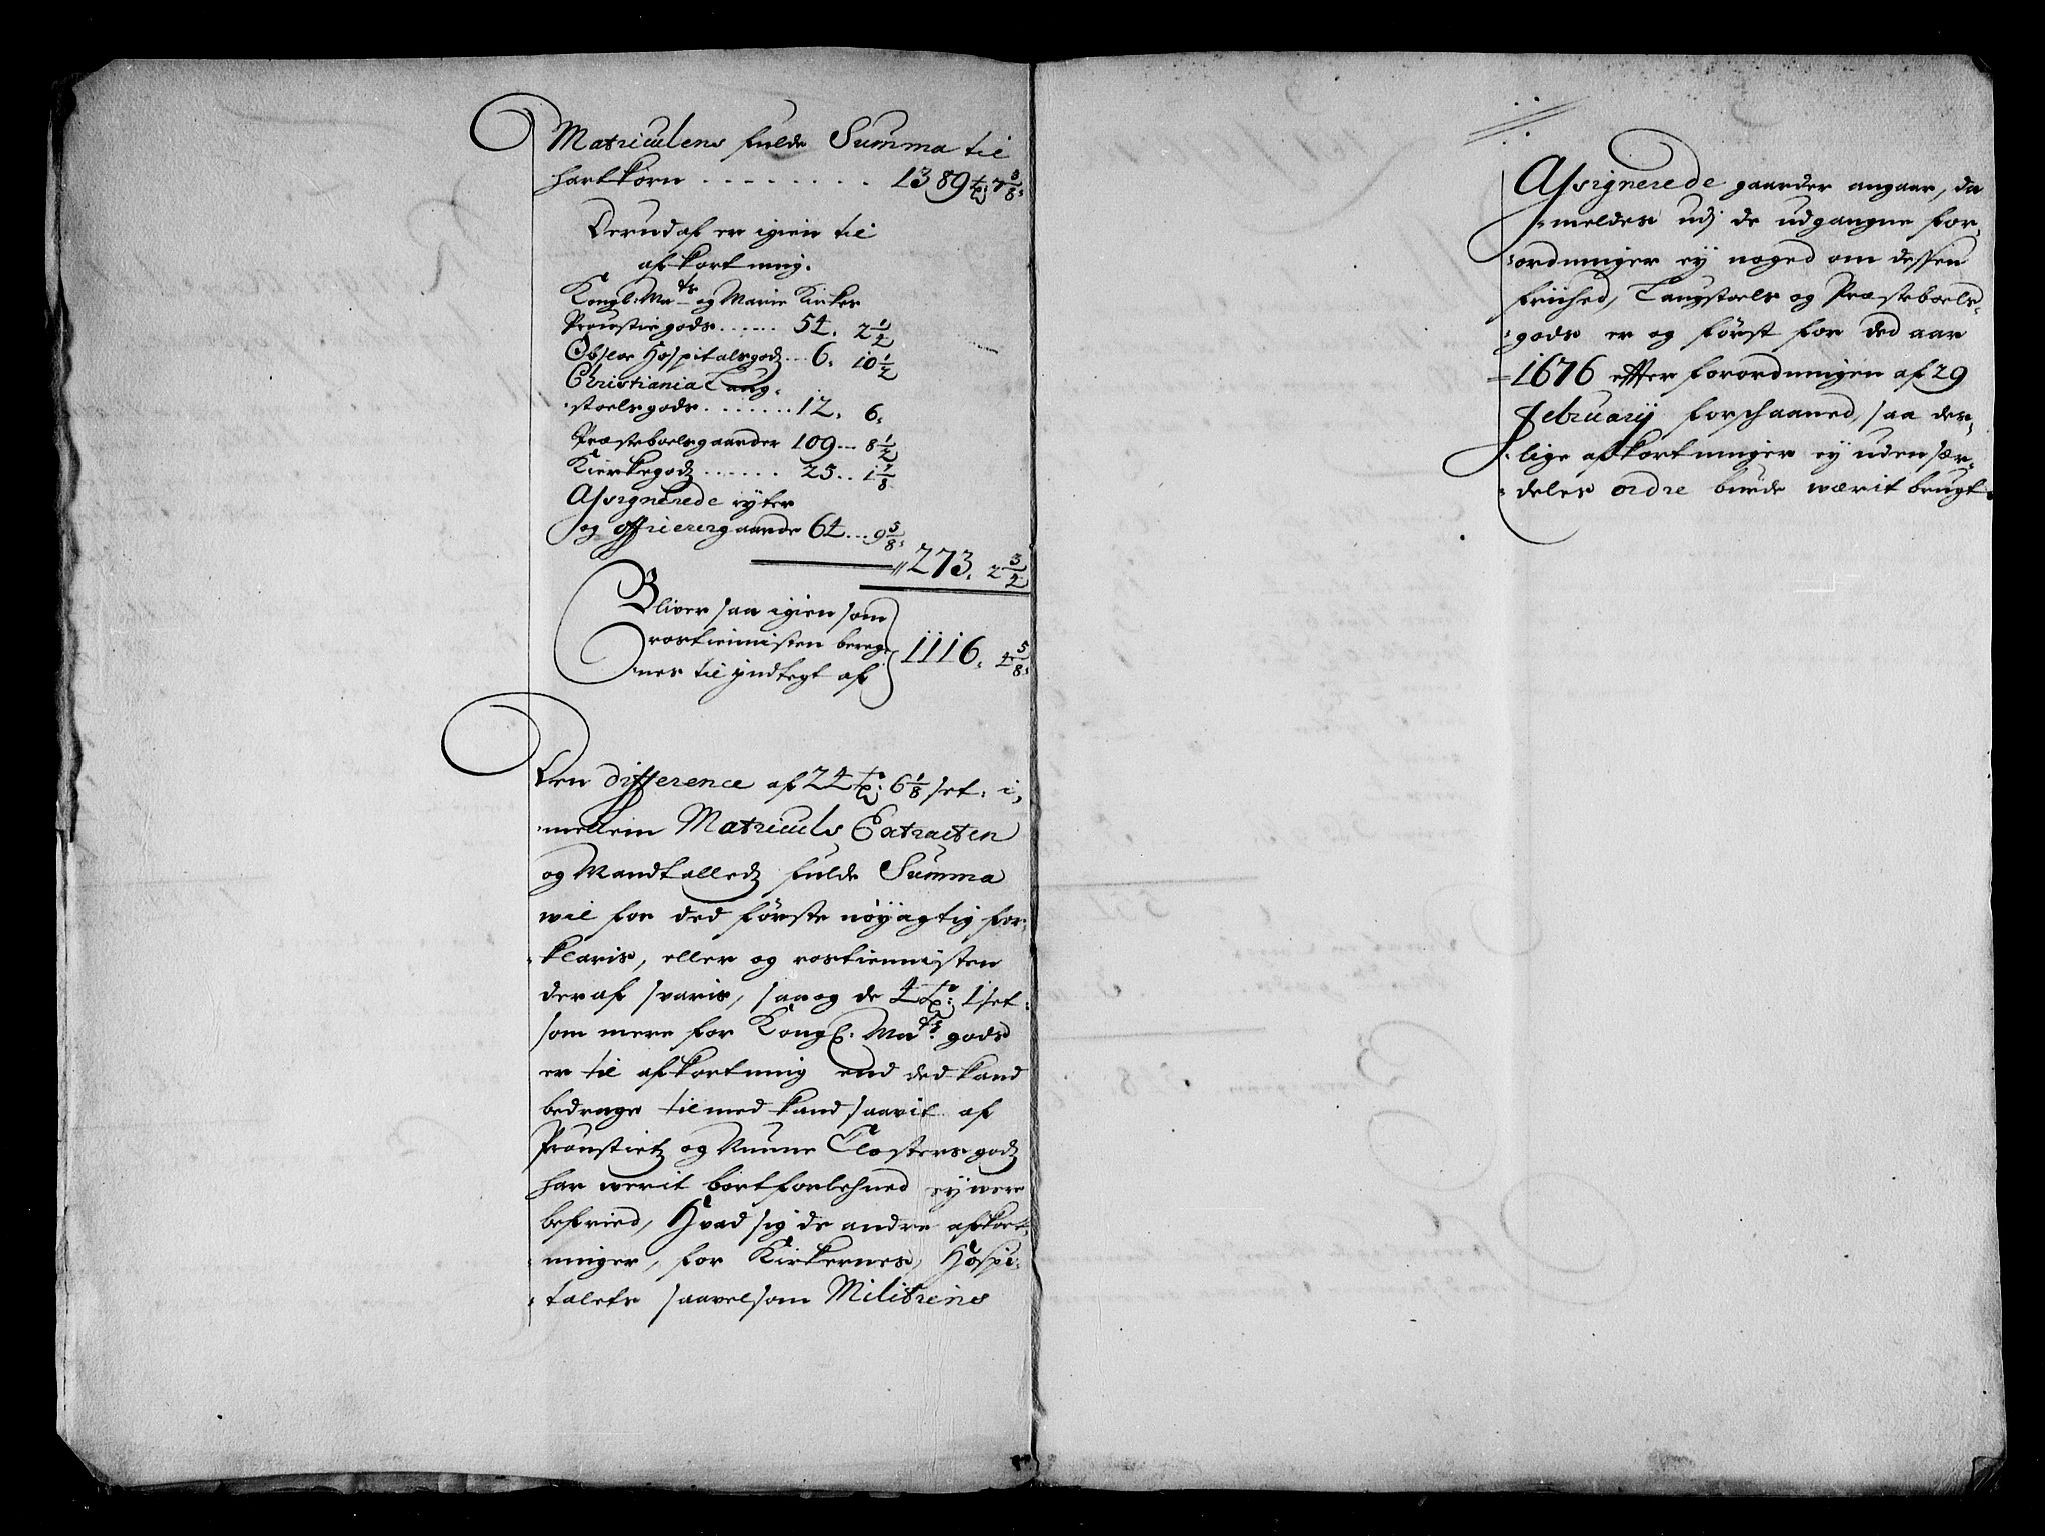 Matriculens fulde Summa til
hartkorn - - - - - - - - 1389 tr: 7 3/8:
Derudaf er igien til
afkortning.
Kongl: Mats og Marie Kirker
Proustie gods...... 54. 2 1/2
Opsloe Hospitals godz... 6. 10 1/2
Christiania Laug-
:stoels gods....... 12. 6:
Præsteboels gaarder 109... 8 1/2
Kierkegodz...... 25.. 1 7/8
Assignerede ryter
og officierer gaarde 64... 9 5/8:
273. 2 3/4
Bliver saa igien som
rostiennisten bereg-
:nes til jndtegt af 1116. 4 5/8:
Den difference af 24 tr: 6 1/8 set: i-
:mellem Matriculs Extracten
og Mandtalledz fulde Summa
wil for ded første nøyagtig for-
:klaris, eller og rostiennisten
deraf svaris, saa og de 4 tr: 1 set:
som mere for Kongl. Mats: gods
er til afkortning end ded kand
bedrage til med kand saavit af
Proustietz og Nunne Closters godz
har werit bortforlehned ey were
befried, Hvad sig de andre afkort-
:ninger, for Kirkernes, Hospi-
:talets saavelsom Militiens
Assignerede gaarder angaar, da
:meldes udj de udgangne for-
:ordninger ey noged om dessen
friihed, Laugstoels og Præsteboels-
:gods er og først for ded aar
1676 effter forordningen af 29
February forschaaned, saa der-
:lige afkortninger ey uden sær-
:deles ordre burde wærit brugt.